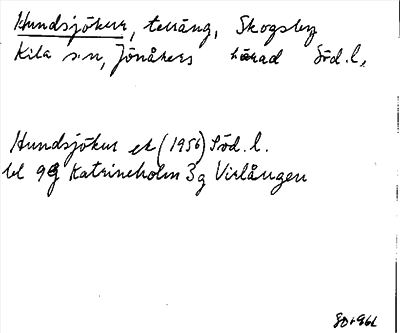 Hundsjökur, terräng, Skogsby
Kila s:n, Jönåkers härad Söd.l.
Hundsjökur ek (1956) Söd.l.
bl 9G Katrineholm 3g Virlången